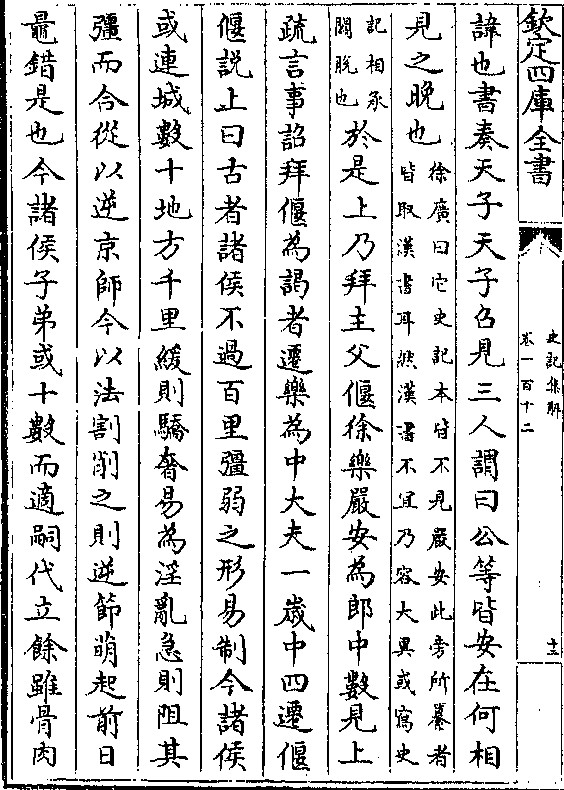 欽定四庫全書
史記集解
卷一百十二
諱也書奏天子天子召見三人謂曰公等皆安在何相
見之晚也
徐廣曰它史記本皆不見嚴安此旁所纂者
皆取漢書耳然漢書不宜乃容大異或寫史
記相承
闕脫也
於是上乃拜主父偃徐樂嚴安為郎中數見上
疏言事詔拜偃為謁者遷樂為中大夫一歲中四遷偃
偃說上曰古者諸侯不過百里彊弱之形易制今諸侯
或連城數十地方千里緩則驕奢易為淫亂急則阻其
彊而合從以逆京師今以法割削之則逆節萌起前日
鼂錯是也今諸侯子弟或十數而適嗣代立餘雖骨肉